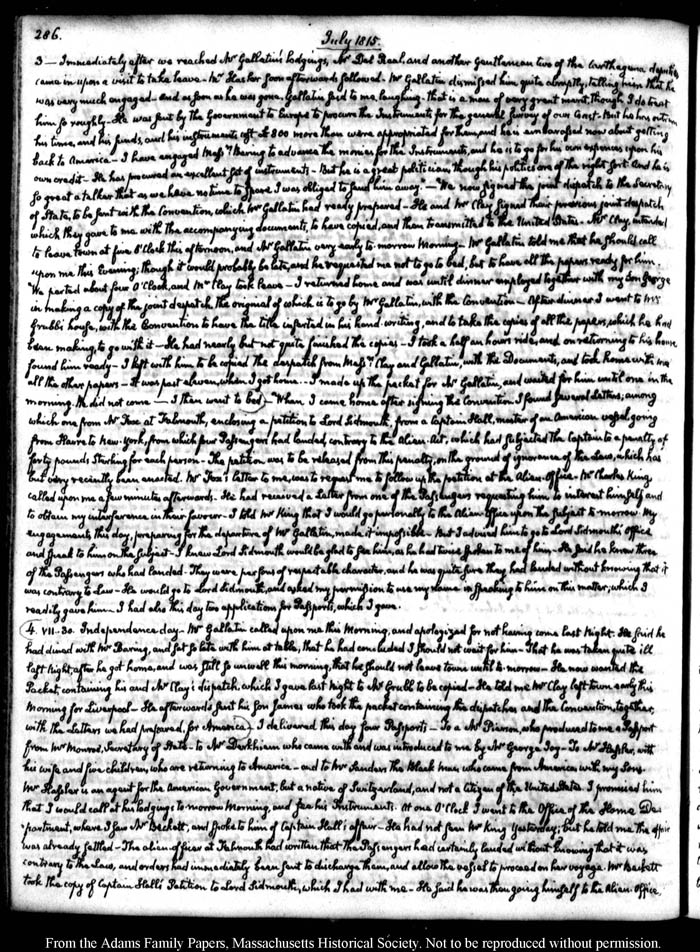 286.
July 1815.
3 — Immediately after we reached Mr Gallatin's lodgings, Mr Del Real, and another Gentleman two of the Carthagena deputies
came in upon a visit to take leave — Mr Hasler soon afterwards followed. Mr Gallatin dismissed him quite abruptly, telling him that he
was very much engaged — and as soon as he was gone, Gallatin said to me, laughing, that is a man of very great merit, though I do treat
him so roughly — He was sent by the Government to Europe to procure the Instruments for the general Survey of our Coast — But he has outrun
his time, and his funds, and his instruments cost £800 more than were appropriated for them, and he is embarrassed now about getting
back to America — I have engaged Messrs Baring to advance the monies for the Instruments, and he is to go for his own expences upon his
own credit — He has procured an excellent set of instruments — But he is a great politician though his politics are of the right sort. And he is
so great a talker that as we have no time to spare I was obliged to send him away. — We now signed the joint dispatch to the Secretary
of State, to be sent with the Convention, which Mr Gallatin had ready prepared — He and Mr Clay signed their previous joint dispatch
which they gave to me with the accompanying documents, to have copied, and then transmitted to the United States — Mr Clay, intended
to leave town at five O'Clock this afternoon, and Mr Gallatin very early to-morrow Morning — Mr Gallatin told me that he should call
upon me this Evening; though it would probably be late, and he requested me not to go to bed, but to have all the papers ready for him.
We parted about four O'Clock, and Mr Clay took leave — I returned home and was until dinner employed together with my Son George
in making a copy of the joint despatch, the original of which is to go by Mr Gallatin, with the Convention — After dinner I went to Mr
Grubb's house, with the Convention to have the title inserted in his hand-writing, and to take the copies of all the papers, which he had
been making, to go with it — He had nearly but not quite finished the copies — I took a half an hours ride, and on returning to his house
found him ready — I left with him to be copied the despatch from Messrs Clay and Gallatin, with the Documents, and took home with me
all the other papers — It was past eleven, when I got home... I made up the packet for Mr Gallatin, and waited for him until one in the
morning. He did not come — I then went to bed — When I came home after signing the Convention I found several Letters; among
which one from Mr Fox at Falmouth, enclosing a petition to Lord Sidmouth, from a Captain Hall, master of an American vessel going
from Havre to New-York, from which four Passengers had landed, contrary to the Alien-Act, which had subjected the Captain to a penalty of
forty pounds Sterling for each person — The petition was to be released from this penalty, on the ground of ignorance of the Law, which has
but very recently been enacted. Mr Fox's letter to me, was to request me to follow up the petition at the Alien-Office. Mr Charles King
called upon me a few minutes afterwards. He had received a Letter from one of the Passengers requesting him to interest himself and
to obtain my interference in their favour — I told Mr King that I would go personally to the Alien-Office upon the subject to-morrow. My
engagements this day, preparing for the departure of Mr Gallatin, made it impossible — But I advised him to go to Lord Sidmouth's Office
and speak to him on the subject — I knew Lord Sidmouth would be glad to see him, as he had twice spoken to me of him — He said he knew three
of the Passengers who had landed. They were persons of respectable character, and he was quite sure they had landed without knowing that it
was contrary to Law — He would go to Lord Sidmouth, and asked my permission to use my name in speaking to him on this matter; which I
readily gave him — I had also this day two applications for Passports, which I gave.
4. VII-30. Independence day — Mr Gallatin called upon me this Morning, and apologized for not having come last Night. He said he
had dined with Mr Baring, and sat so late with him at table, that he had concluded I should not wait for him — That he was taken quite ill
last Night, after he got home, and was still so unwell this morning, that he should not leave town until to-morrow — He now wanted the
Packet, containing his and Mr Clay's dispatch, which I gave last Night to Mr Grubb to be copied — He told me Mr Clay left town early this
Morning for Liverpool — He afterwards sent his Son James who took the packet containing his dispatches and the Convention, together,
with the Letters we had prepared, for America — I delivered this day four Passports — To a Mr Pierson, who produced to me a Passport
from Mr Monroe, Secretary of State — to Mr Derkheim who came with and was introduced to me by Mr George Joy — To Mr Hassler, with
his wife and five children, who are returning to America — and to Mr Sanders the Black man, who came from America with my Sons.
Mr Hassler is an agent for the American Government, but a native of Switzerland, and not a Citizen of the United States. I promised him
that I would call at his lodgings to-morrow Morning, and see his Instruments. At one O'Clock I went to the Office of the Home De-
partment, where I saw Mr Beckett, and spoke to him of Captain Hall's affair — He had not seen Mr King yesterday; but he told me the affair
was already settled — The alien-officer at Falmouth had written that the Passengers had certainly landed without knowing that it was
contrary to the Law, and orders had immediately been sent to discharge them, and allow the vessel to proceed on her voyage. Mr Beckett
took the copy of Captain Hall's Petition to Lord Sidmouth, which I had with me — He said he was then going himself to the Alien-Office,
From the Adams Family Papers, Massachusetts Historical Society. Not to be reproduced without permission.